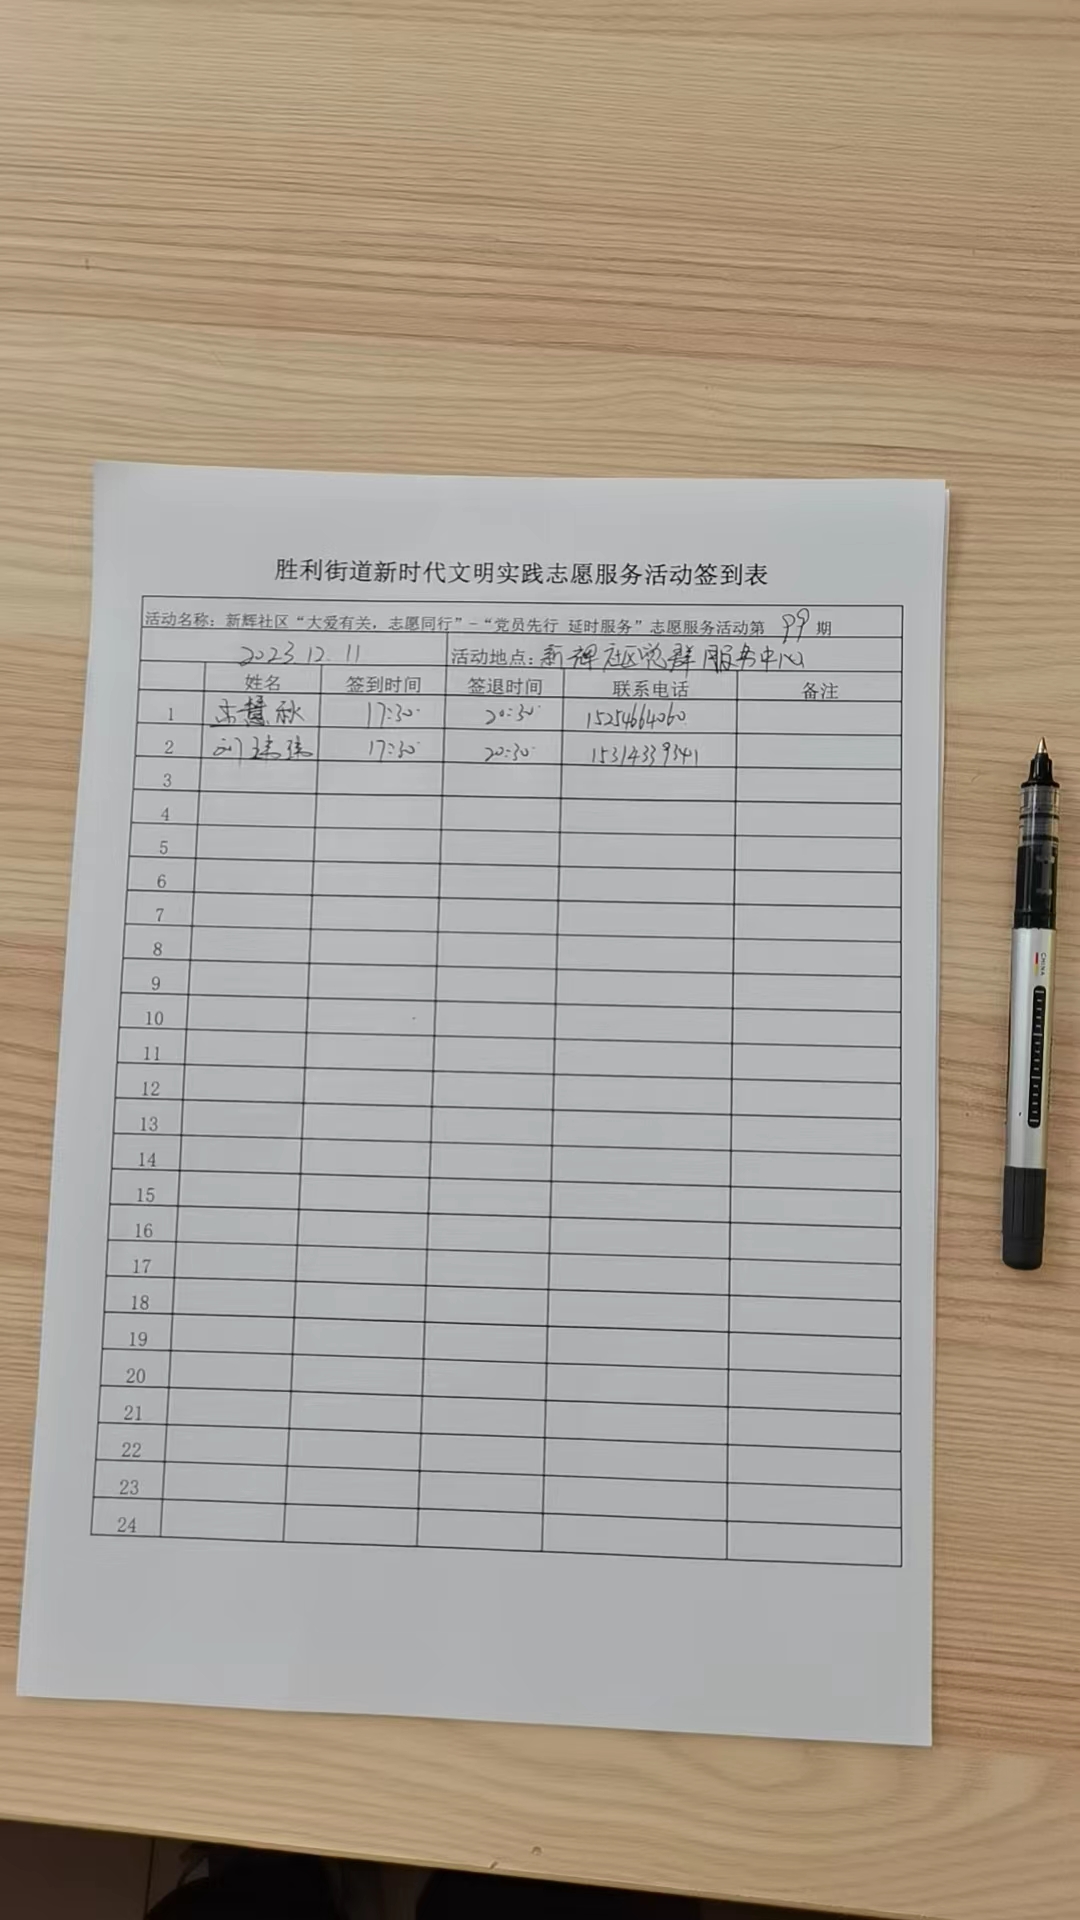 胜利街道新时代文明实践志愿服务活动签到表
活动名称：新辉社区“大爱有关，志愿同行”-“党员先行 延时服务”志愿服务活动第 99 期
2023.12.11 活动地点：新辉社区党群服务中心
姓名 签到时间 签退时间 联系电话 备注
1 慧秋 17:30 20:30 15254664060
2 刘 17:30 20:30 15314339341
3
4
5
6
7
8
9
10
11
12
13
14
15
16
17
18
19
20
21
22
23
24
CHINA